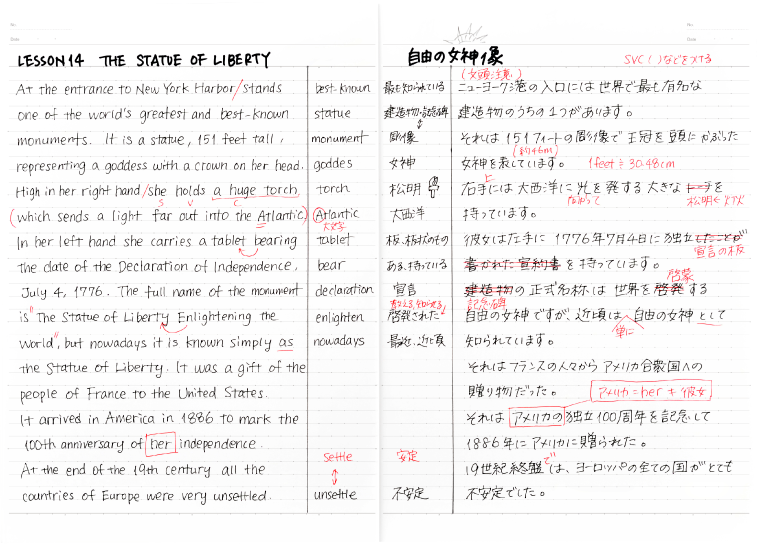 LESSON 14 THE STATUE OF LIBERTY
At the entrance to New York Harbor/stands
one of the world's greatest and best-known
monuments. It is a statue, 151 feet tall,
representing a goddess with a crown on her head.
High in her right hand/she holds a huge torch,
S V C
(which sends a light far out into the Atlantic.)
In her left hand she carries a tablet bearing
the date of the Declaration of Independence,
July 4, 1776. The full name of the monument
is "The Statue of Liberty Enlightening the
World", but nowadays it is known simply as
the Statue of Liberty. It was a gift of the
people of France to the United States.
It arrived in America in 1886 to mark the
100th anniversary of her independence.
At the end of the 19th century all the
countries of Europe were very unsettled.
best-known
statue
monument
goddes
torch
Atlantic
大文字
tablet
bear
declaration
enlighten
nowadays
settle
↕
unsettle
自由の女神像
SVC( )などをつける
最も知られている
建造物・記念碑
彫像
女神
松明
大西洋
板、板状のもの
ある、持っている
宣言
教える、知らせる
啓発された
最近、近頃
安定
不安定
(文頭注意)
ニューヨーク港の入口には世界で最も有名な
建造物のうちの1つがあります。
それは151フィートの彫像で王冠を頭にかぶった
(約46m)
女神を表しています。 1feet≒30.48cm
右手には大西洋に光を発する大きなトーチを
上
松明
持っています。
彼女は左手に1776年7月4日に独立したことが
宣言の板
書かれた宣約書を持っています。
啓蒙
建造物の正式名称は世界を啓発する
記念碑
自由の女神ですが、近頃は自由の女神として
単に
知られています。
それはフランスの人々からアメリカ合衆国への
贈り物だった。
アメリカ=her→彼女
それはアメリカの独立100周年を記念して
1886年にアメリカに贈られた。
19世紀終盤では、ヨーロッパの全ての国がとても
不安定でした。